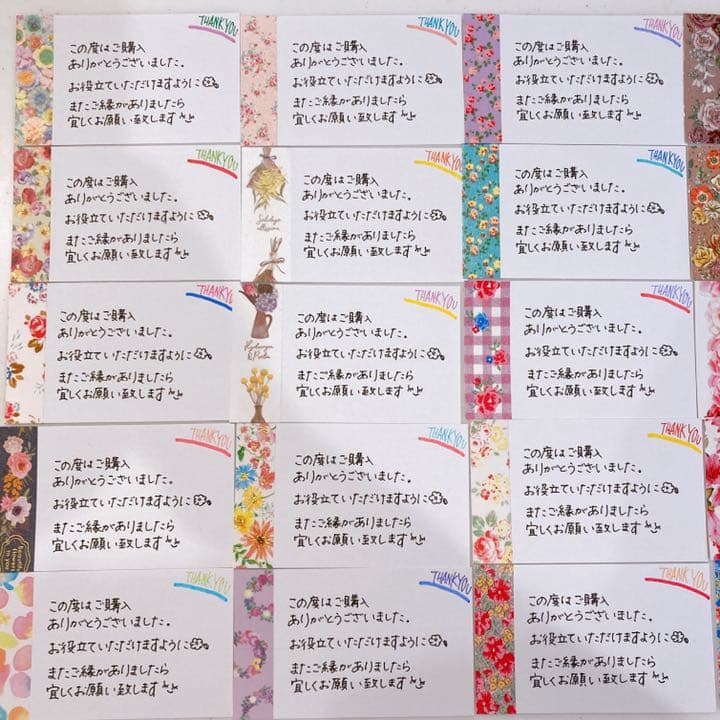 THANKYOU
この度はご購入
ありがとうございました。
お役立ていただけますように
またご縁がありましたら
宜しくお願い致します
THANKYOU
この度はご購入
ありがとうございました。
お役立ていただけますように
またご縁がありましたら
宜しくお願い致します
THANKYOU
この度はご購入
ありがとうございました。
お役立ていただけますように
またご縁がありましたら
宜しくお願い致します
THANKYOU
この度はご購入
ありがとうございました。
お役立ていただけますように
またご縁がありましたら
宜しくお願い致します
THANKYOU
この度はご購入
ありがとうございました。
お役立ていただけますように
またご縁がありましたら
宜しくお願い致します
THANKYOU
この度はご購入
ありがとうございました。
お役立ていただけますように
またご縁がありましたら
宜しくお願い致します
THANKYOU
この度はご購入
ありがとうございました。
お役立ていただけますように
またご縁がありましたら
宜しくお願い致します
THANKYOU
この度はご購入
ありがとうございました。
お役立ていただけますように
またご縁がありましたら
宜しくお願い致します
THANKYOU
この度はご購入
ありがとうございました。
お役立ていただけますように
またご縁がありましたら
宜しくお願い致します
THANKYOU
この度はご購入
ありがとうございました。
お役立ていただけますように
またご縁がありましたら
宜しくお願い致します
THANKYOU
この度はご購入
ありがとうございました。
お役立ていただけますように
またご縁がありましたら
宜しくお願い致します
THANKYOU
この度はご購入
ありがとうございました。
お役立ていただけますように
またご縁がありましたら
宜しくお願い致します
THANKYOU
この度はご購入
ありがとうございました。
お役立ていただけますように
またご縁がありましたら
宜しくお願い致します
THANKYOU
この度はご購入
ありがとうございました。
お役立ていただけますように
またご縁がありましたら
宜しくお願い致します
THANKYOU
この度はご購入
ありがとうございました。
お役立ていただけますように
またご縁がありましたら
宜しくお願い致します